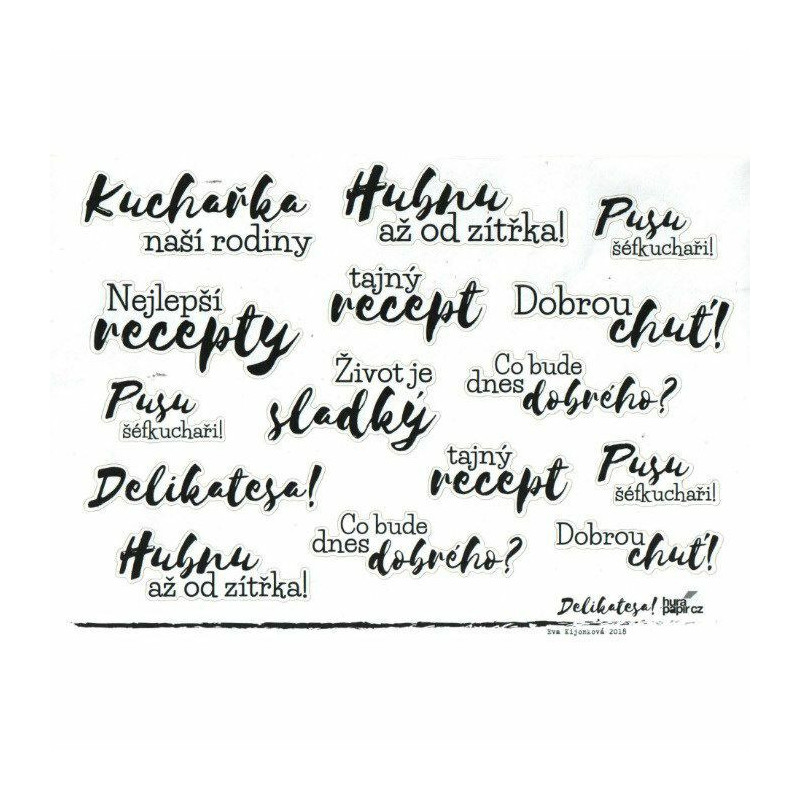 Kuchařka
naší rodiny
Hubnu
až od zítřka!
Pusu
šéfkuchaři!
Nejlepší
recepty
tajný
recept
Dobrou
chuť!
Život je
sladký
Co bude
dnes dobrého?
Pusu
šéfkuchaři!
Delikatesa!
tajný
recept
Pusu
šéfkuchaři!
Hubnu
až od zítřka!
Co bude
dnes dobrého?
Dobrou
chuť!
Delikatesa! hurá papír.cz
Eva Kijonková 2018